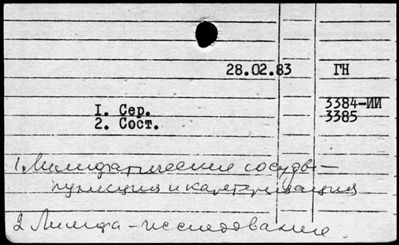 28.02.83 ГН
3384-ИИ
3385
I. Сер.
2. Сост.
1. Лимфатические сосуды –
пункция и катетеризация
2. Лимфа - исследование.